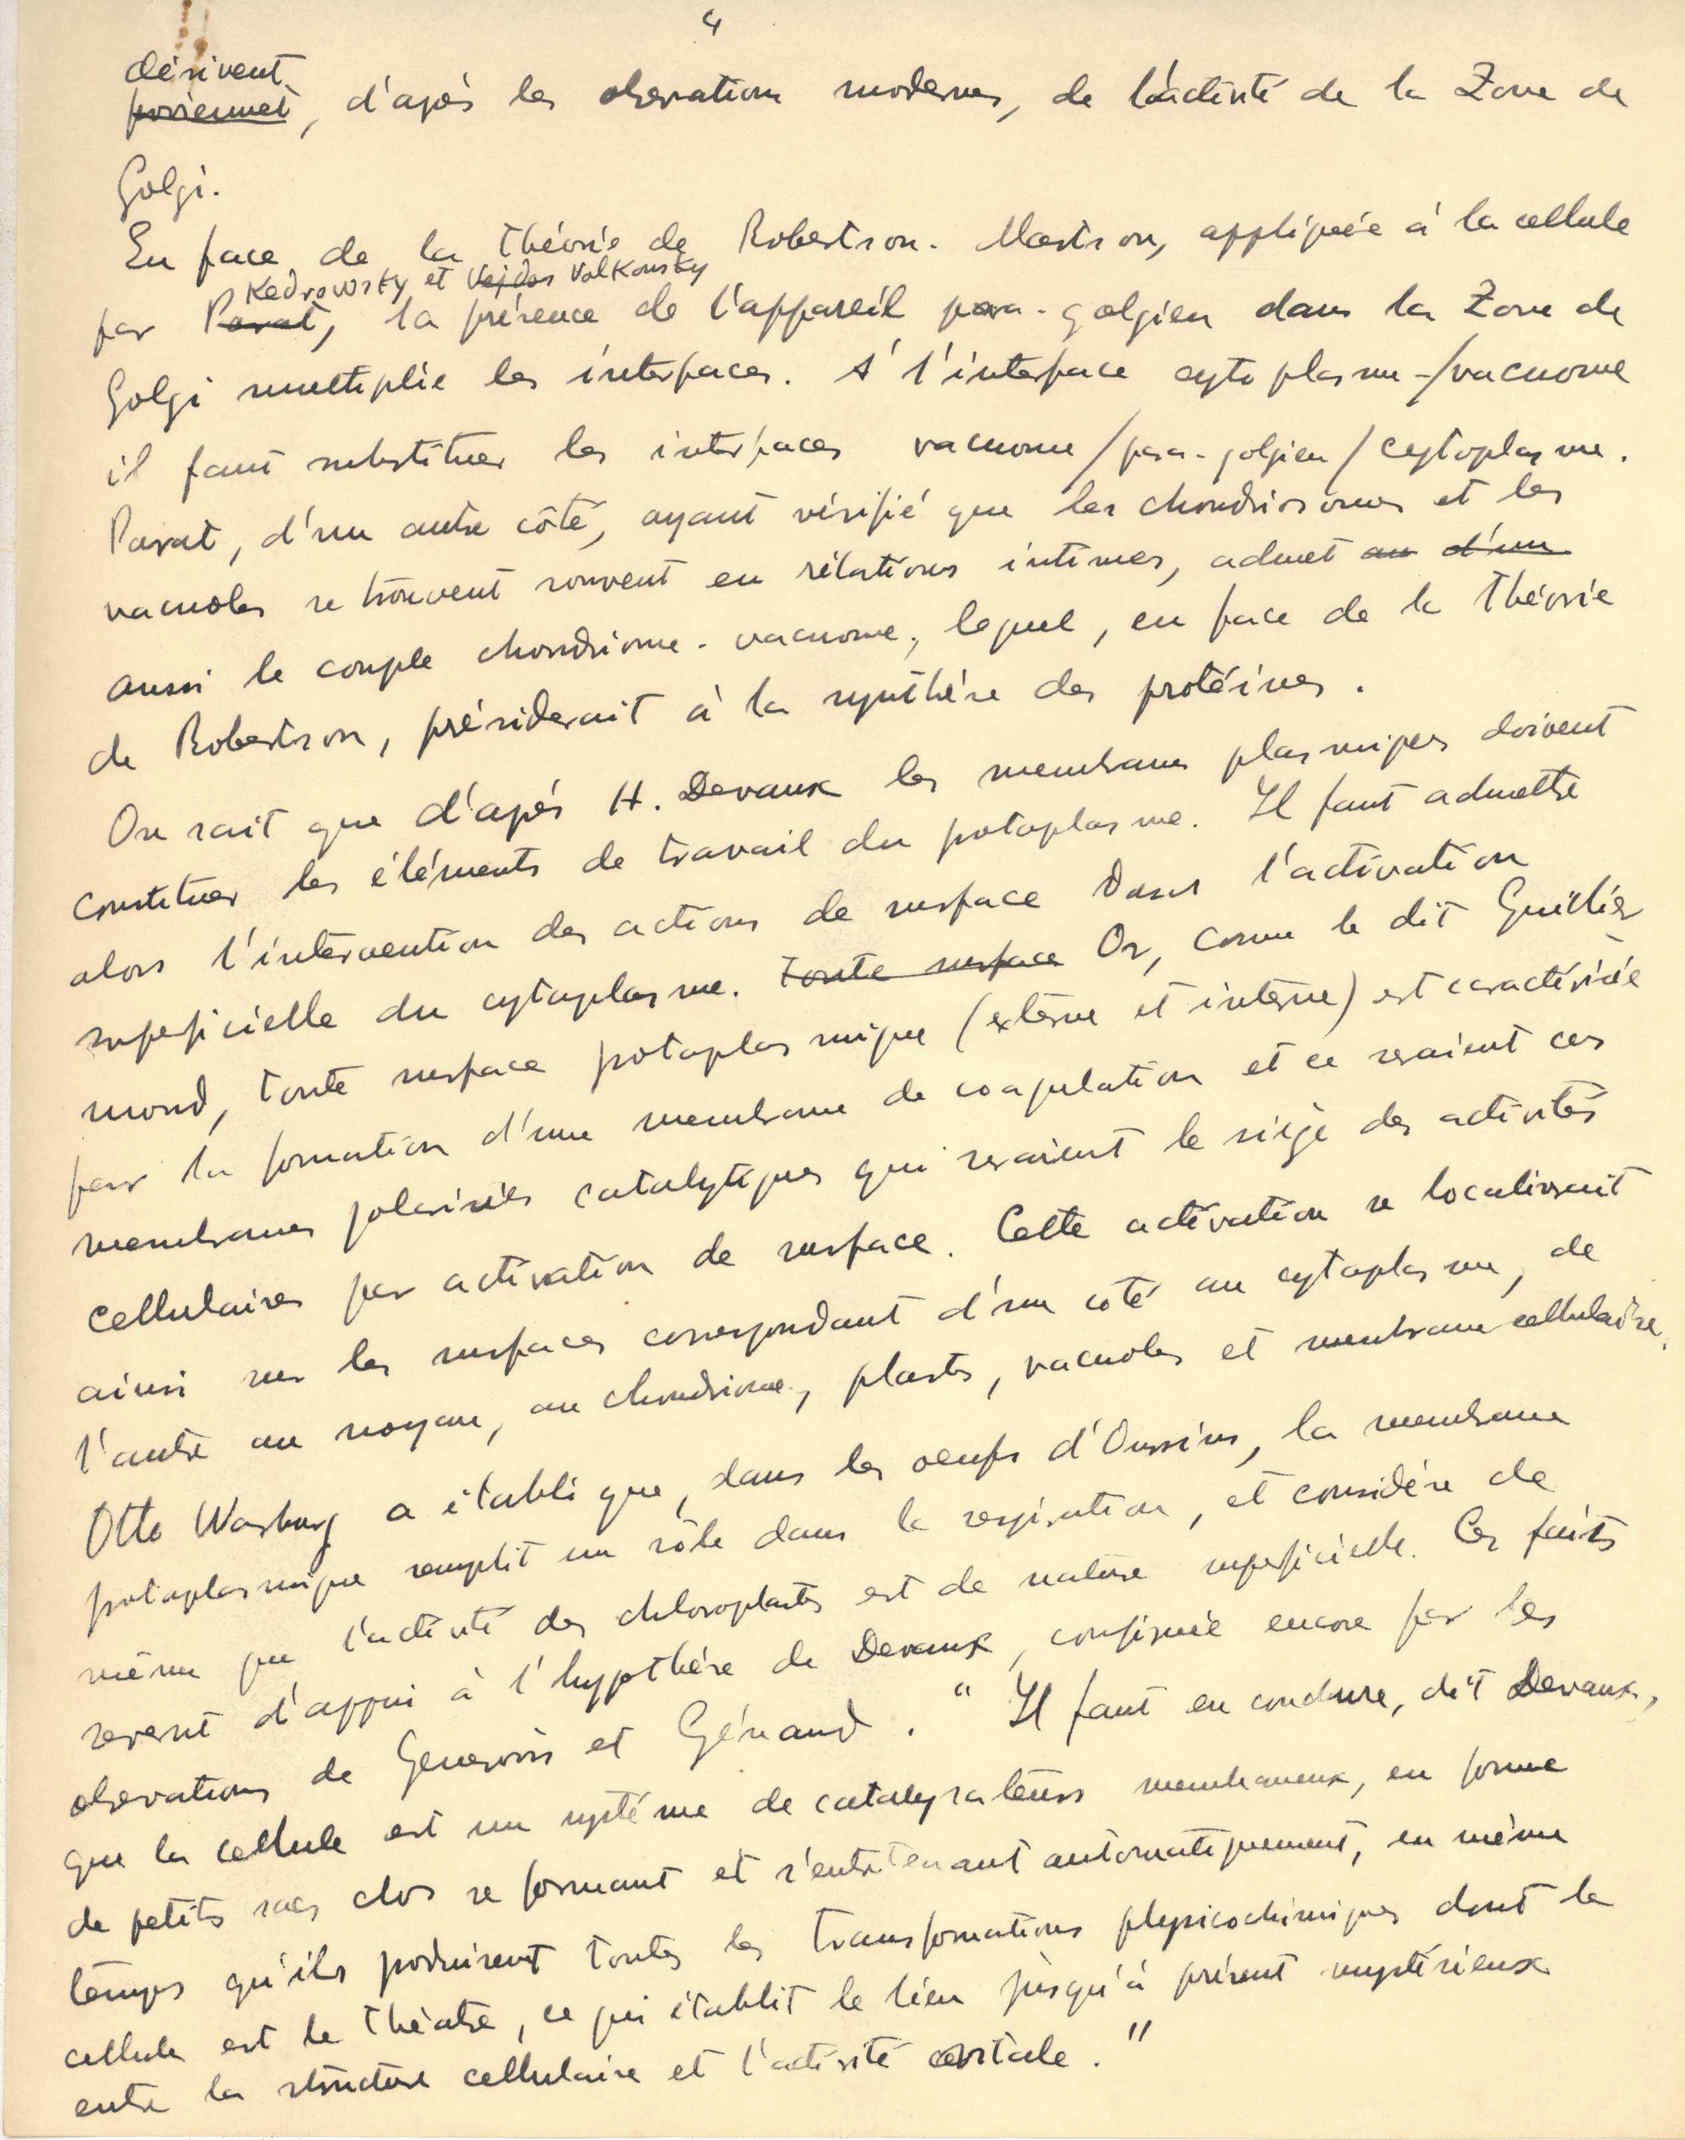 4
dérivent
proviennent, d'après les observations modernes, de l'activité de la Zone de
Golgi.
En face de la théorie de Robertson-Marston, appliquée à la cellule
Kedrowsky et Volkonsky
par Parat, la présence de l'appareil para-golgien dans la Zone de
Golgi multiplie les interfaces. A l'interface cytoplasme-/vacuome
il faut substituer les interfaces vacuome/para-golgien/cytoplasme.
Parat, d'un autre côté, ayant vérifié que les chondriosomes et les
vacuoles se trouvent souvent en rélations intimes, admet au d'un
aussi le couple chondriome-vacuome, lequel, en face de la théorie
de Robertson, présiderait à la synthèse des protéines.
On sait que d'après H. Devaux les membranes plasmiques doivent
constituer les éléments de travail du protoplasme. Il faut admettre
alors l'intervention des actions de surface dans l'activation
superficielle du cytoplasme. Toute surface Or, comme le dit Guillier
mond, toute surface protoplasmique (externe et interne) est caractérisée
par la formation d'une membrane de coagulation et ce seraient ces
membranes polarisées catalytiques qui seraient le siège des activités
cellulaires par activation de surface. Cette activation se localiserait
ainsi sur les surfaces correspondant d'un coté au cytoplasme, de
l'autre au noyau, au chondriome, plastes, vacuoles et membrane cellulaire.
Otto Warburg a établi que, dans les oeufs d'Oursins, la membrane
protoplasmique remplit un rôle dans la respiration, et considère de
même que l'activité des chloroplastes est de nature superficielle. Ces faits
servent d'appui à l'hypothèse de Devaux, confirmée encore par les
observations de Genevois et Génaud. "Il faut en conclure, dit Devaux,
que la cellule est un système de catalysateurs membraneux, en forme
de petits sacs clos se formant et s'entretenant automatiquement, en même
temps qu'ils produisent toutes les transformations physicochimiques dont la
cellule est le théatre, ce qui établit le lien jusqu'à présent mystérieux
entre la structure cellulaire et l'activité vitale."